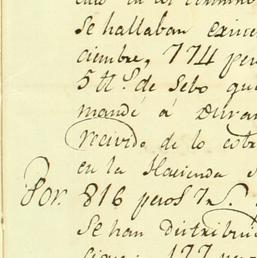 se hallaban exis
ciembre, 774 pe
5 tt.s de Sebo que
mandé á Duran
recivido de lo cob
en la Hacienda
Por. 816 pesos 7 r.s
se han distribui
177